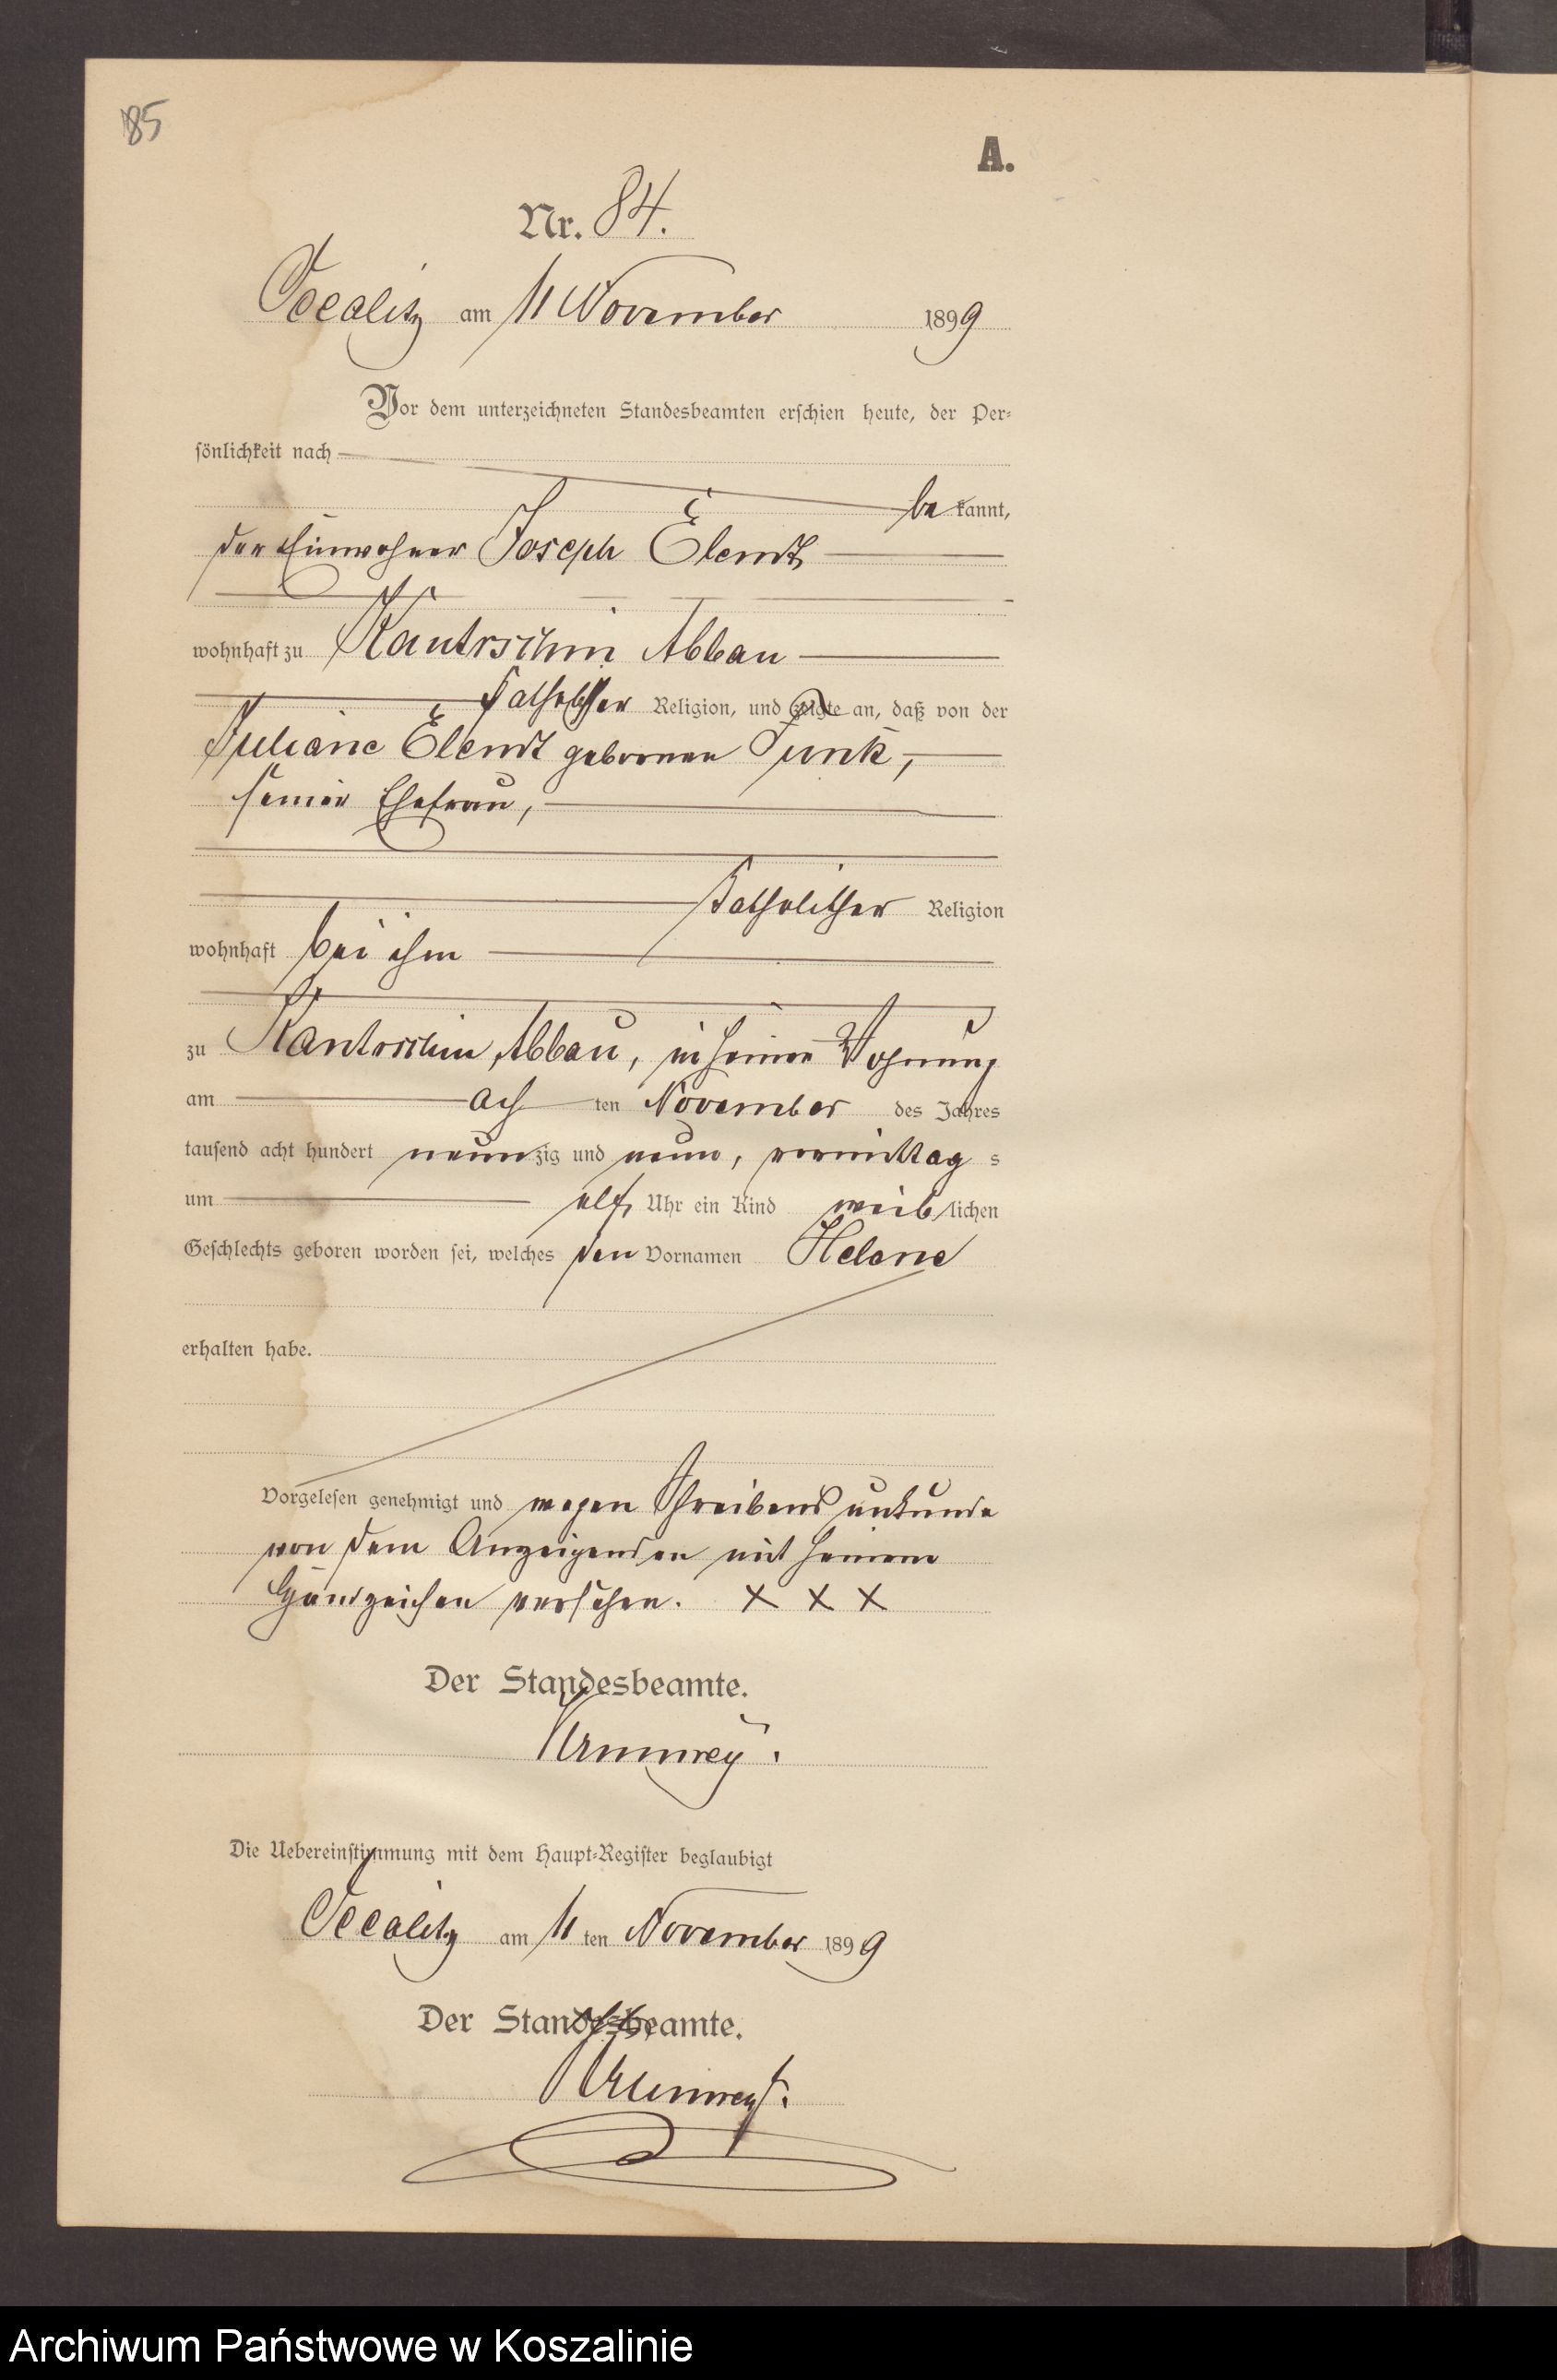 185
A.
Nr. 84.
Occalitz am 11 November 1899
Vor dem unterzeichneten Standesbeamten erschien heute, der Per-
sönlichkeit nach
be kannt,
der Einwohner Joseph Elendt
wohnhaft zu Kantrschin Abbau
katholischer Religion, und zeigte an, daß von der
Juliane Elendt geborenen Funk,
seiner Ehefrau,
katholischer Religion
wohnhaft bei ihm
zu Kantrschin, Abbau, in seiner Wohnung
am ach ten November des Jahres
tausend acht hundert neunzig und neun, vormittag s
um elf Uhr ein Kind weiblichen
Geschlechts geboren worden sei, welches den Vornamen Helene
erhalten habe.
Vorgelesen genehmigt und wegen Schreibens unkunde
von dem Anzeigenden mit seinem
Handzeichen versehen. X X X
Der Standesbeamte.
Krumrey.
Die Uebereinstimmung mit dem Haupt-Register beglaubigt
Occalitz am 11 ten November 1899
Der Standesbeamte.
Krumrey.
Archiwum Państwowe w Koszalinie